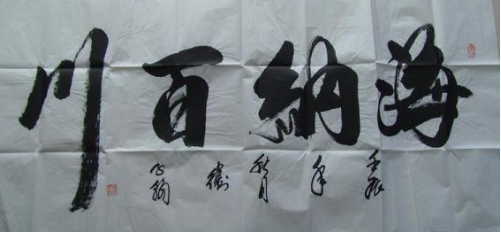 海纳百川
壬辰年秋月